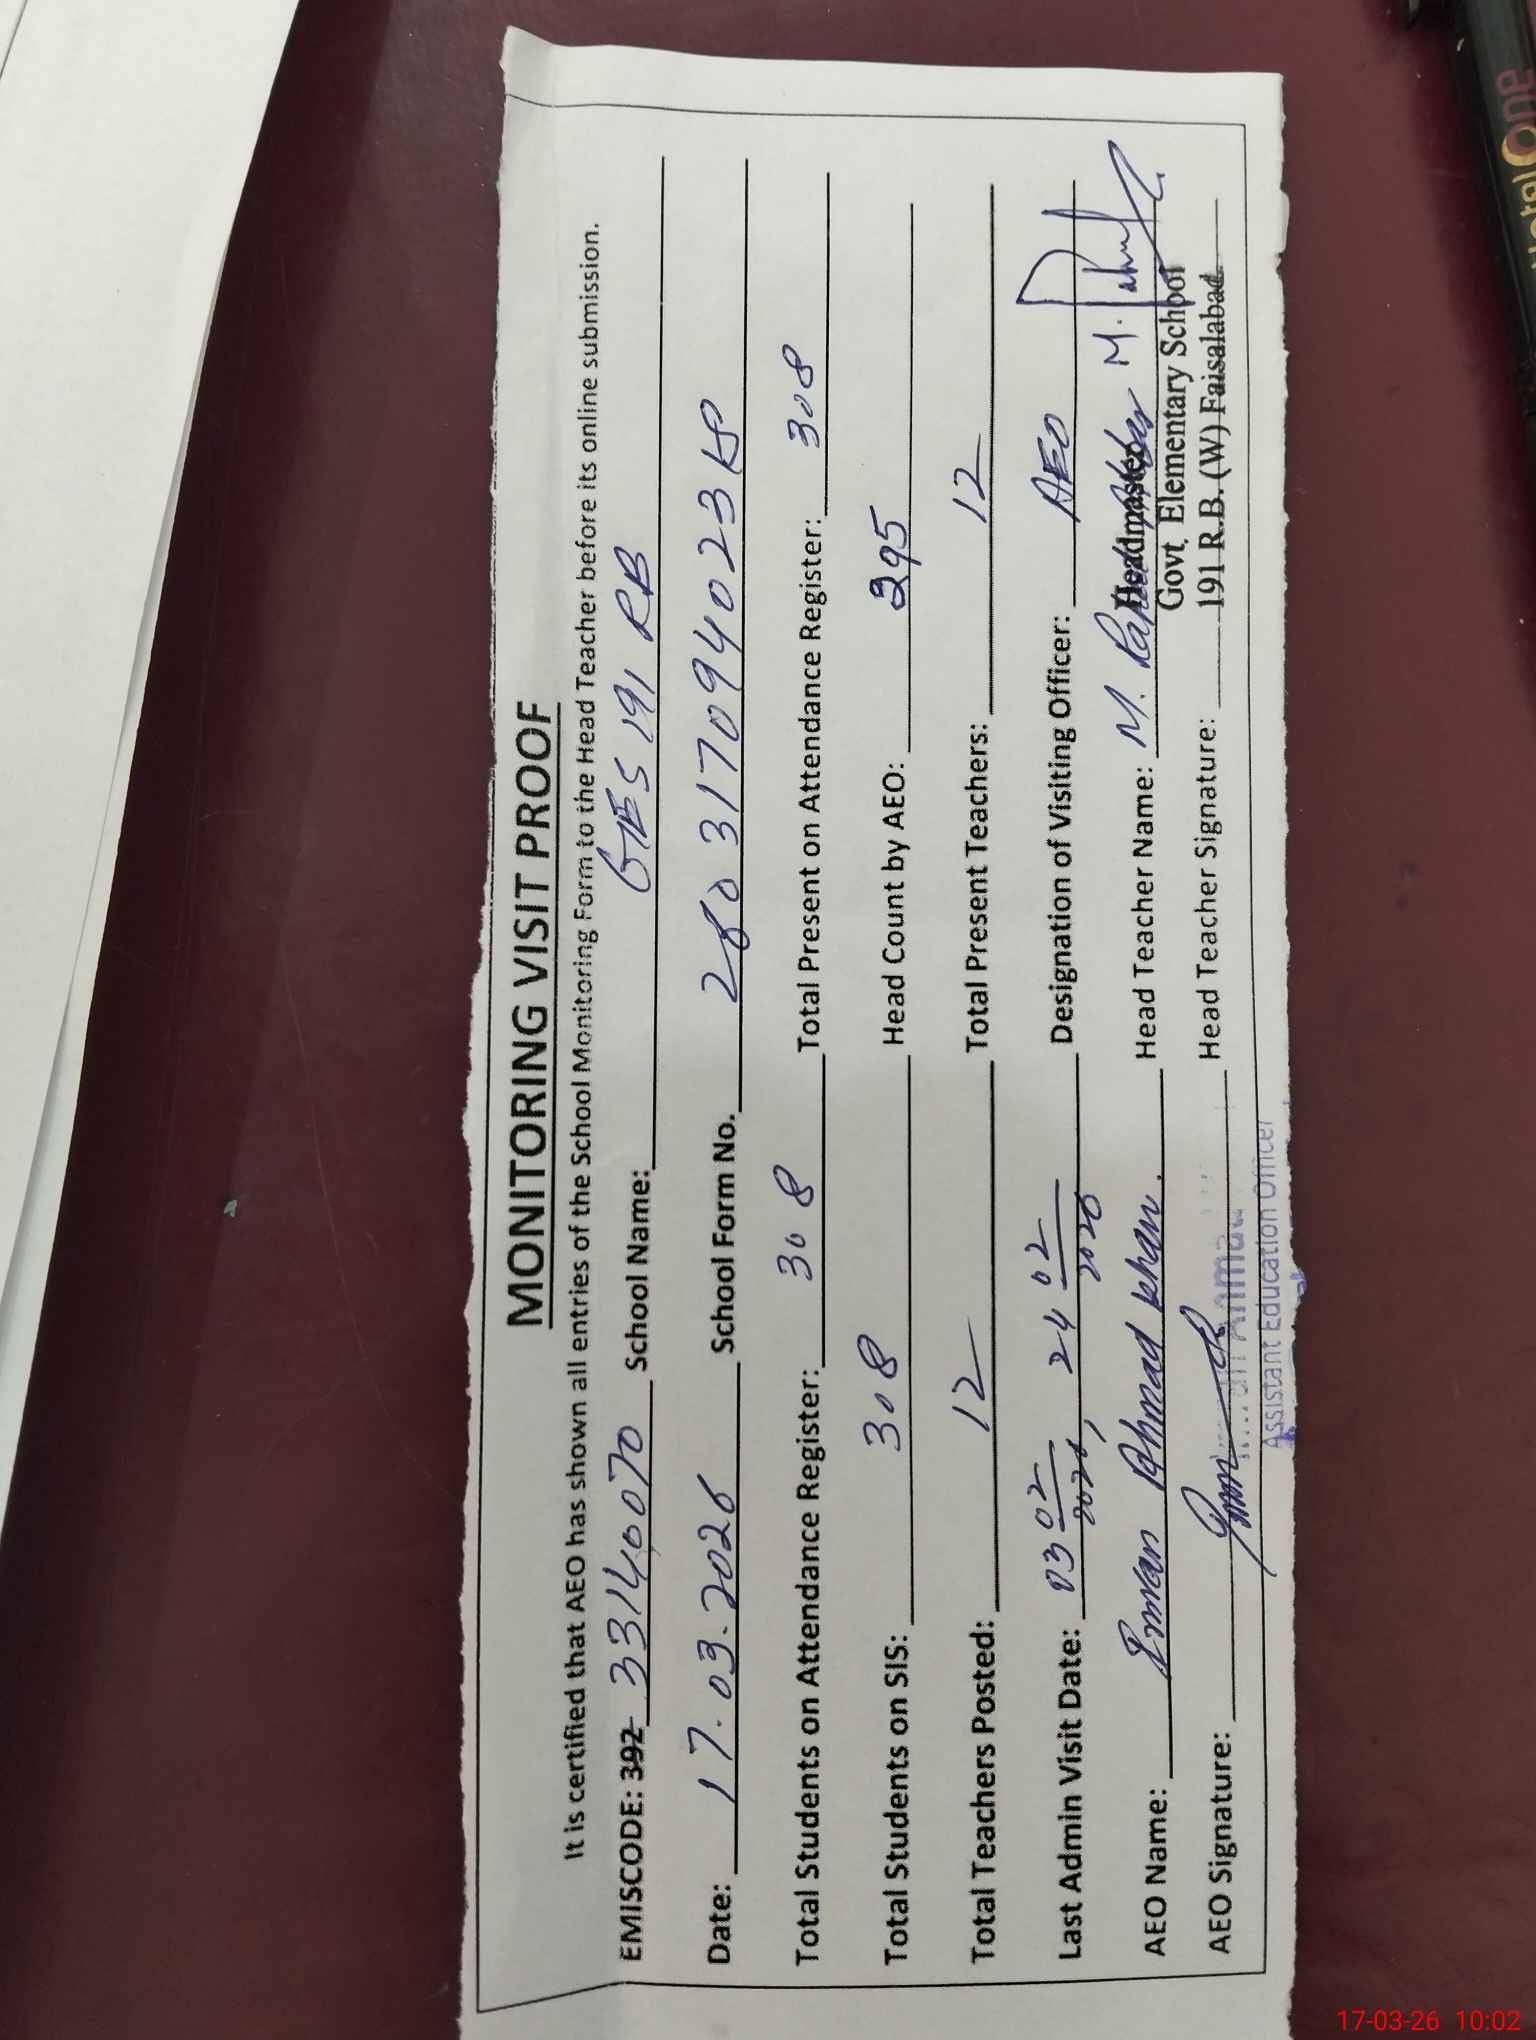 MONITORING VISIT PROOF
It is certified that AEO has shown all entries of the School Monitoring Form to the Head Teacher before its online submission.
EMISCODE: 392 33140070 School Name: GES 191 RB
Date: 17.03.2026 School Form No. 260317094023
Total Students on Attendance Register: 308 Total Present on Attendance Register: 308
Total Students on SIS: 308 Head Count by AEO: 295
Total Teachers Posted: 12 Total Present Teachers: 12
Last Admin Visit Date: 03 02 2026, 24 02 2026 Designation of Visiting Officer: AEO
AEO Name: Imran Ahmad Khan. Head Teacher Name: M.
Headmaster
Govt. Elementary School
AEO Signature: Head Teacher Signature: 191 R.B. (W) Faisalabad.
Assistant Education Officer
Total One
17-03-26 10:02